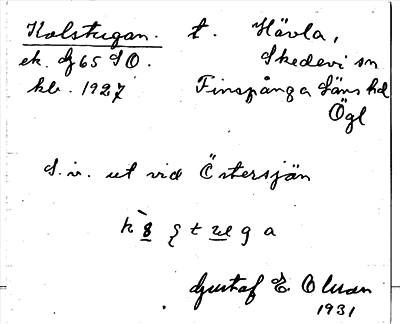 Kolstugan. t. Hävla,
ek. bf 65 SO. Skedevi sn
kb. 1927 Finspånga Läns hd
Ögl
S. v. ut vid Östersjön
Gustaf E Olsson
1931